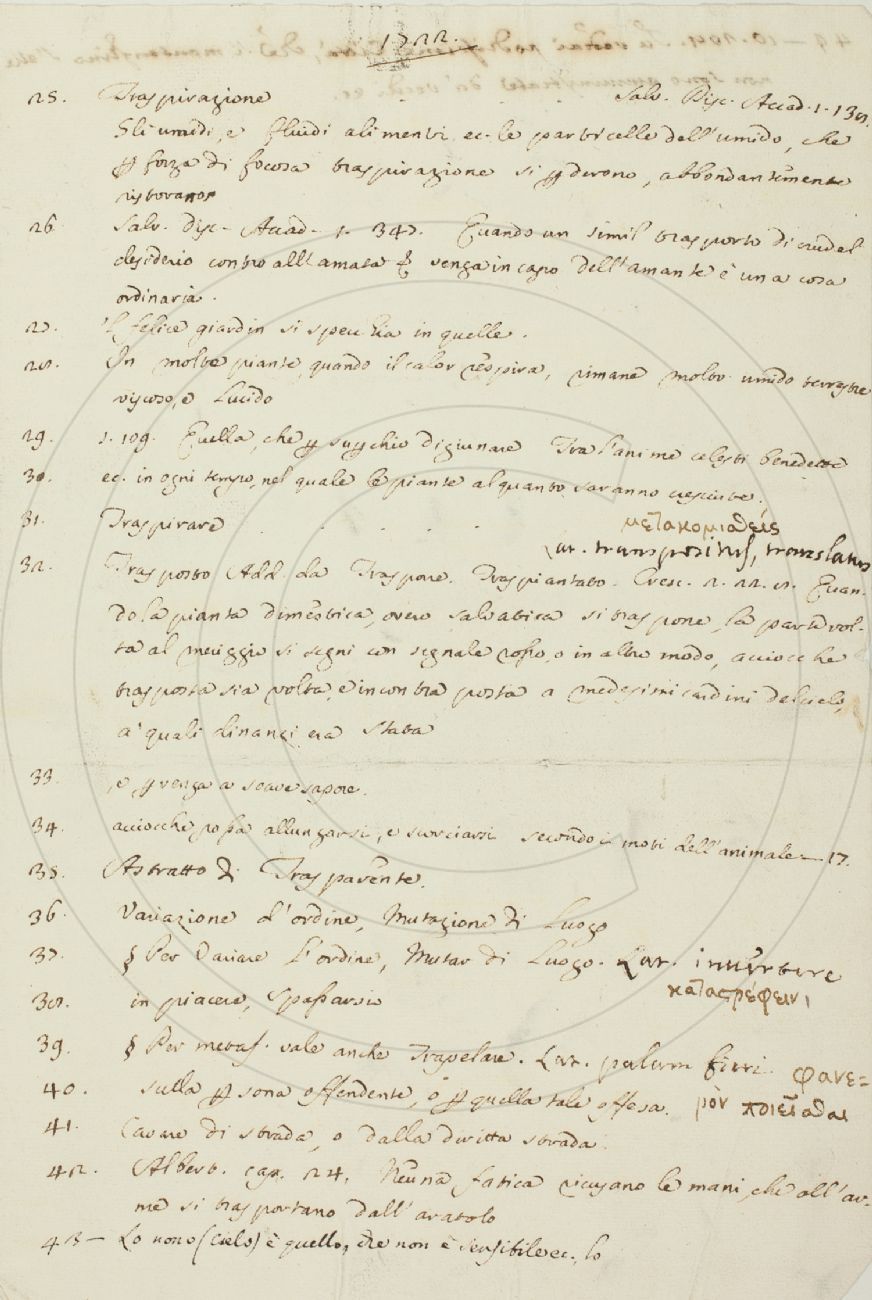 1722.
25. Traspirazione Salv. Disc. Accad. 1. 138.
Gli umidi, e fluidi alimenti ec. le particelle dell'umido, che
ꝑ forza di focosa traspirazione si ꝑderono, abbondantemente
ristorano
26. Salv. disc. Accad. 1. 347. Quando un simil trasporto di crudel
desiderio contro all'amata venga in capo dell'amante è una cosa
ordinaria.
27. felice giardin si specchia in quelle.
28. In molte piante, quando il calor respira, rimane molto umido terrestre
viscoso, e Lucido
29. 1. 109. Quella, che ꝑ digiunare Tra l'anime celesti benedette
30. ec. in ogni tempo, nel quale le piante alquanto saranno cresciute.
31. Traspirare μετακομισθείς
Lat. transpositus, translatus
32. Trasposto Add. da Traspore. Traspiantato. Cresc. 2. 22. 8. Quan-
do la pianta dimestica, overo salvatica si traspone, la parte vol-
ta al meriggio si segni con segnale rosso, o in altro modo, acciocche
trasposta sia volta, e incontra posta a medesimi cardini del cielo,
a' quali dinanzi era stata
33. , e ꝑvenga a soave sapore.
34. acciocche possa allungarsi, e scorciarsi secondo i moti dell'animale — 17.
35. Astratto di Trasparente.
36. Variazione d'ordine, Mutazione di Luogo
37. § Per Variare l'ordine, Mutar di Luogo. Lat. invertere
καταστρέφειν,
38. in piacere, Spassarsi
39. § Per metaf. vale anche Trapelare. Lat. palam fieri φανε=
40. sulla ꝑsona offendente, o ꝑ quella tale offesa. ρὸν ποιεῖσθαι
41. Cavare di strada, o dalla diritta strada.
42. Albert. cap. 24. Neuna fatica ricusano le mani, che all'ar-
me si trasportano dall'aratolo
43 — Lo nono (cielo) è quello, che non è sensibile ec., lo